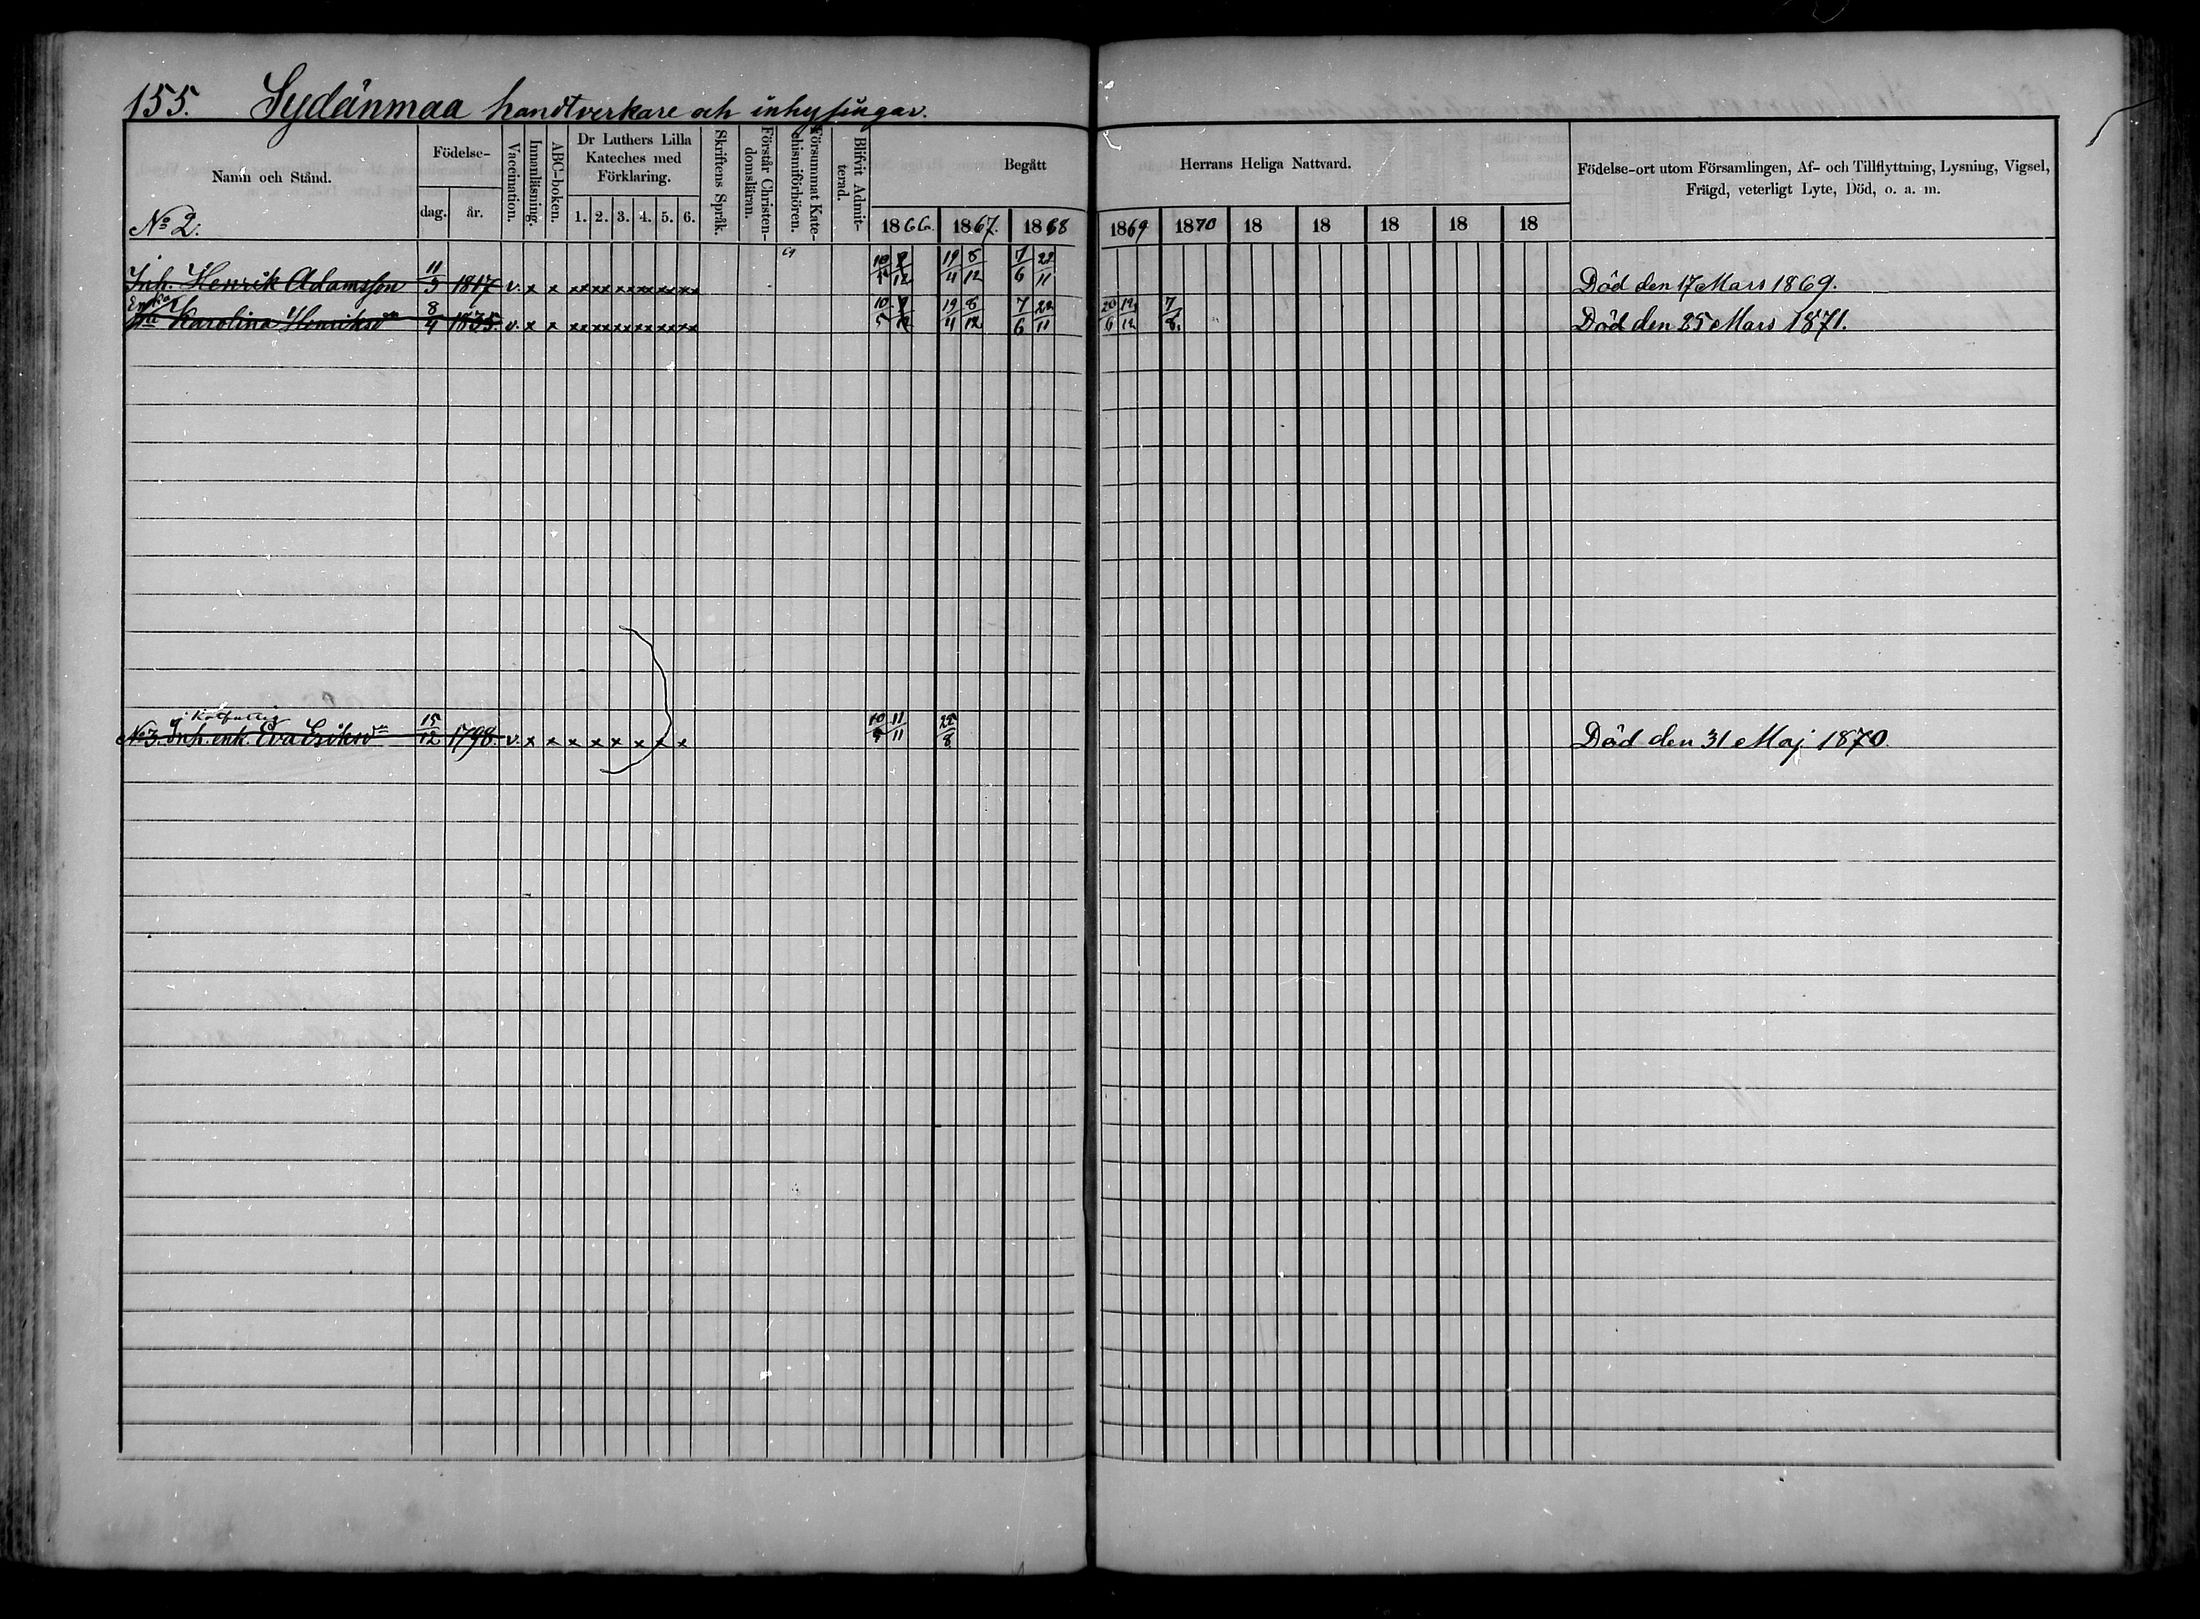 155. Sydänmaa handtverkare och inhysingar.
Namn och Stånd.
Födelse-
dag. år.
Vaccination.
Innanläsning.
ABC-boken.
Dr Luthers Lilla Kateches med Förklaring.
1. 2. 3. 4. 5. 6.
Skriftens Språk.
Förstår Christendomsläran.
Försummat Katechismiförhören.
Blifvit Admitterad.
Begått Herrans Heliga Nattvard.
1866. 1867. 1868 1869 1870 18 18 18 18 18
Födelse-ort utom Församlingen, Af- och Tillflyttning, Lysning, Vigsel,
Frägd, veterligt Lyte, Död, o. a. m.
No 2.
Inh. Henrik Adamsson 11/5 1817 v. x x xx xx xx xx xx xx 19/4 8/12 7/6 22/11 Död den 17 Mars 1869.
Enka
Karolina Henriksdn 8/4 1835. v. x x xx xx xx xx xx xx 10/5 19/4 8/12 7/6 22/11 20/6 12/12 7/8. Död den 25 Mars 1871.
No 3. Inh. enk. Eva Eriksdn 15/12 1798. v. x x x x x x x x 11/11 25/8 Död den 31 Maj 1870.